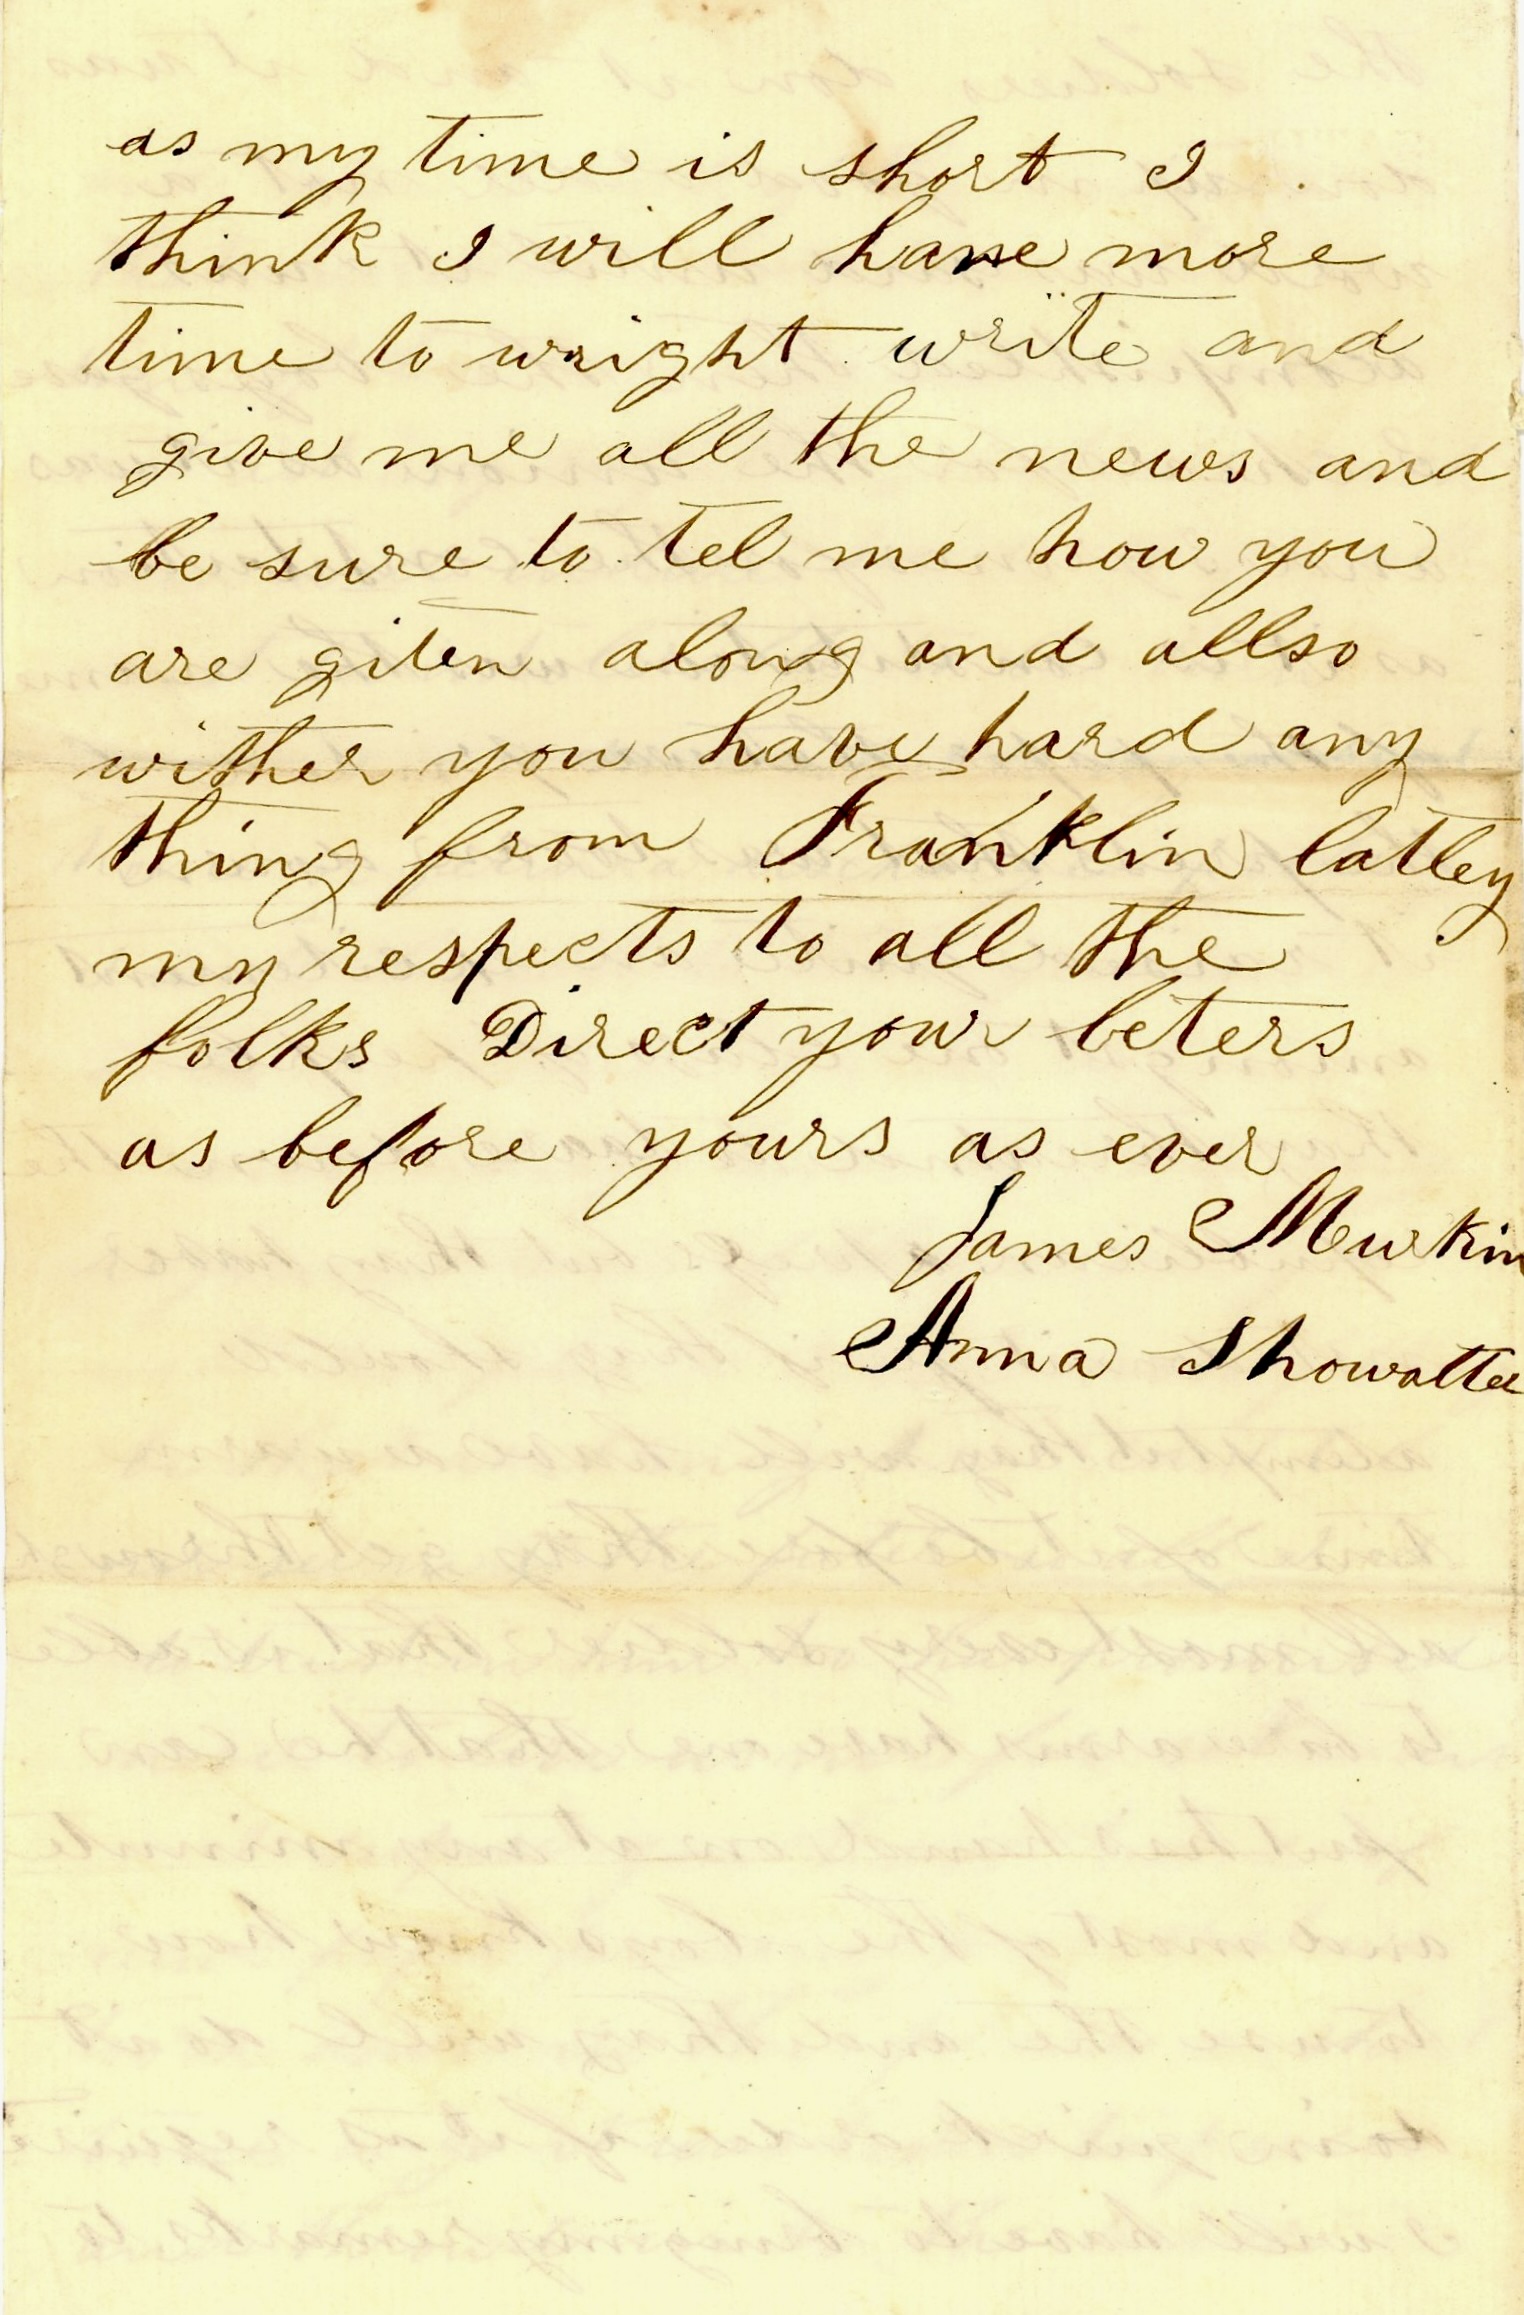 as my time is short I
think I will have more
time to wright write and
give me all the news and
be sure to tel me how you
are giten along and allso
wither you have hard any
thing from Franklin latley
my respects to all the
folks Direct your leters
as before yours as ever
James Murkin
Anna Showalter